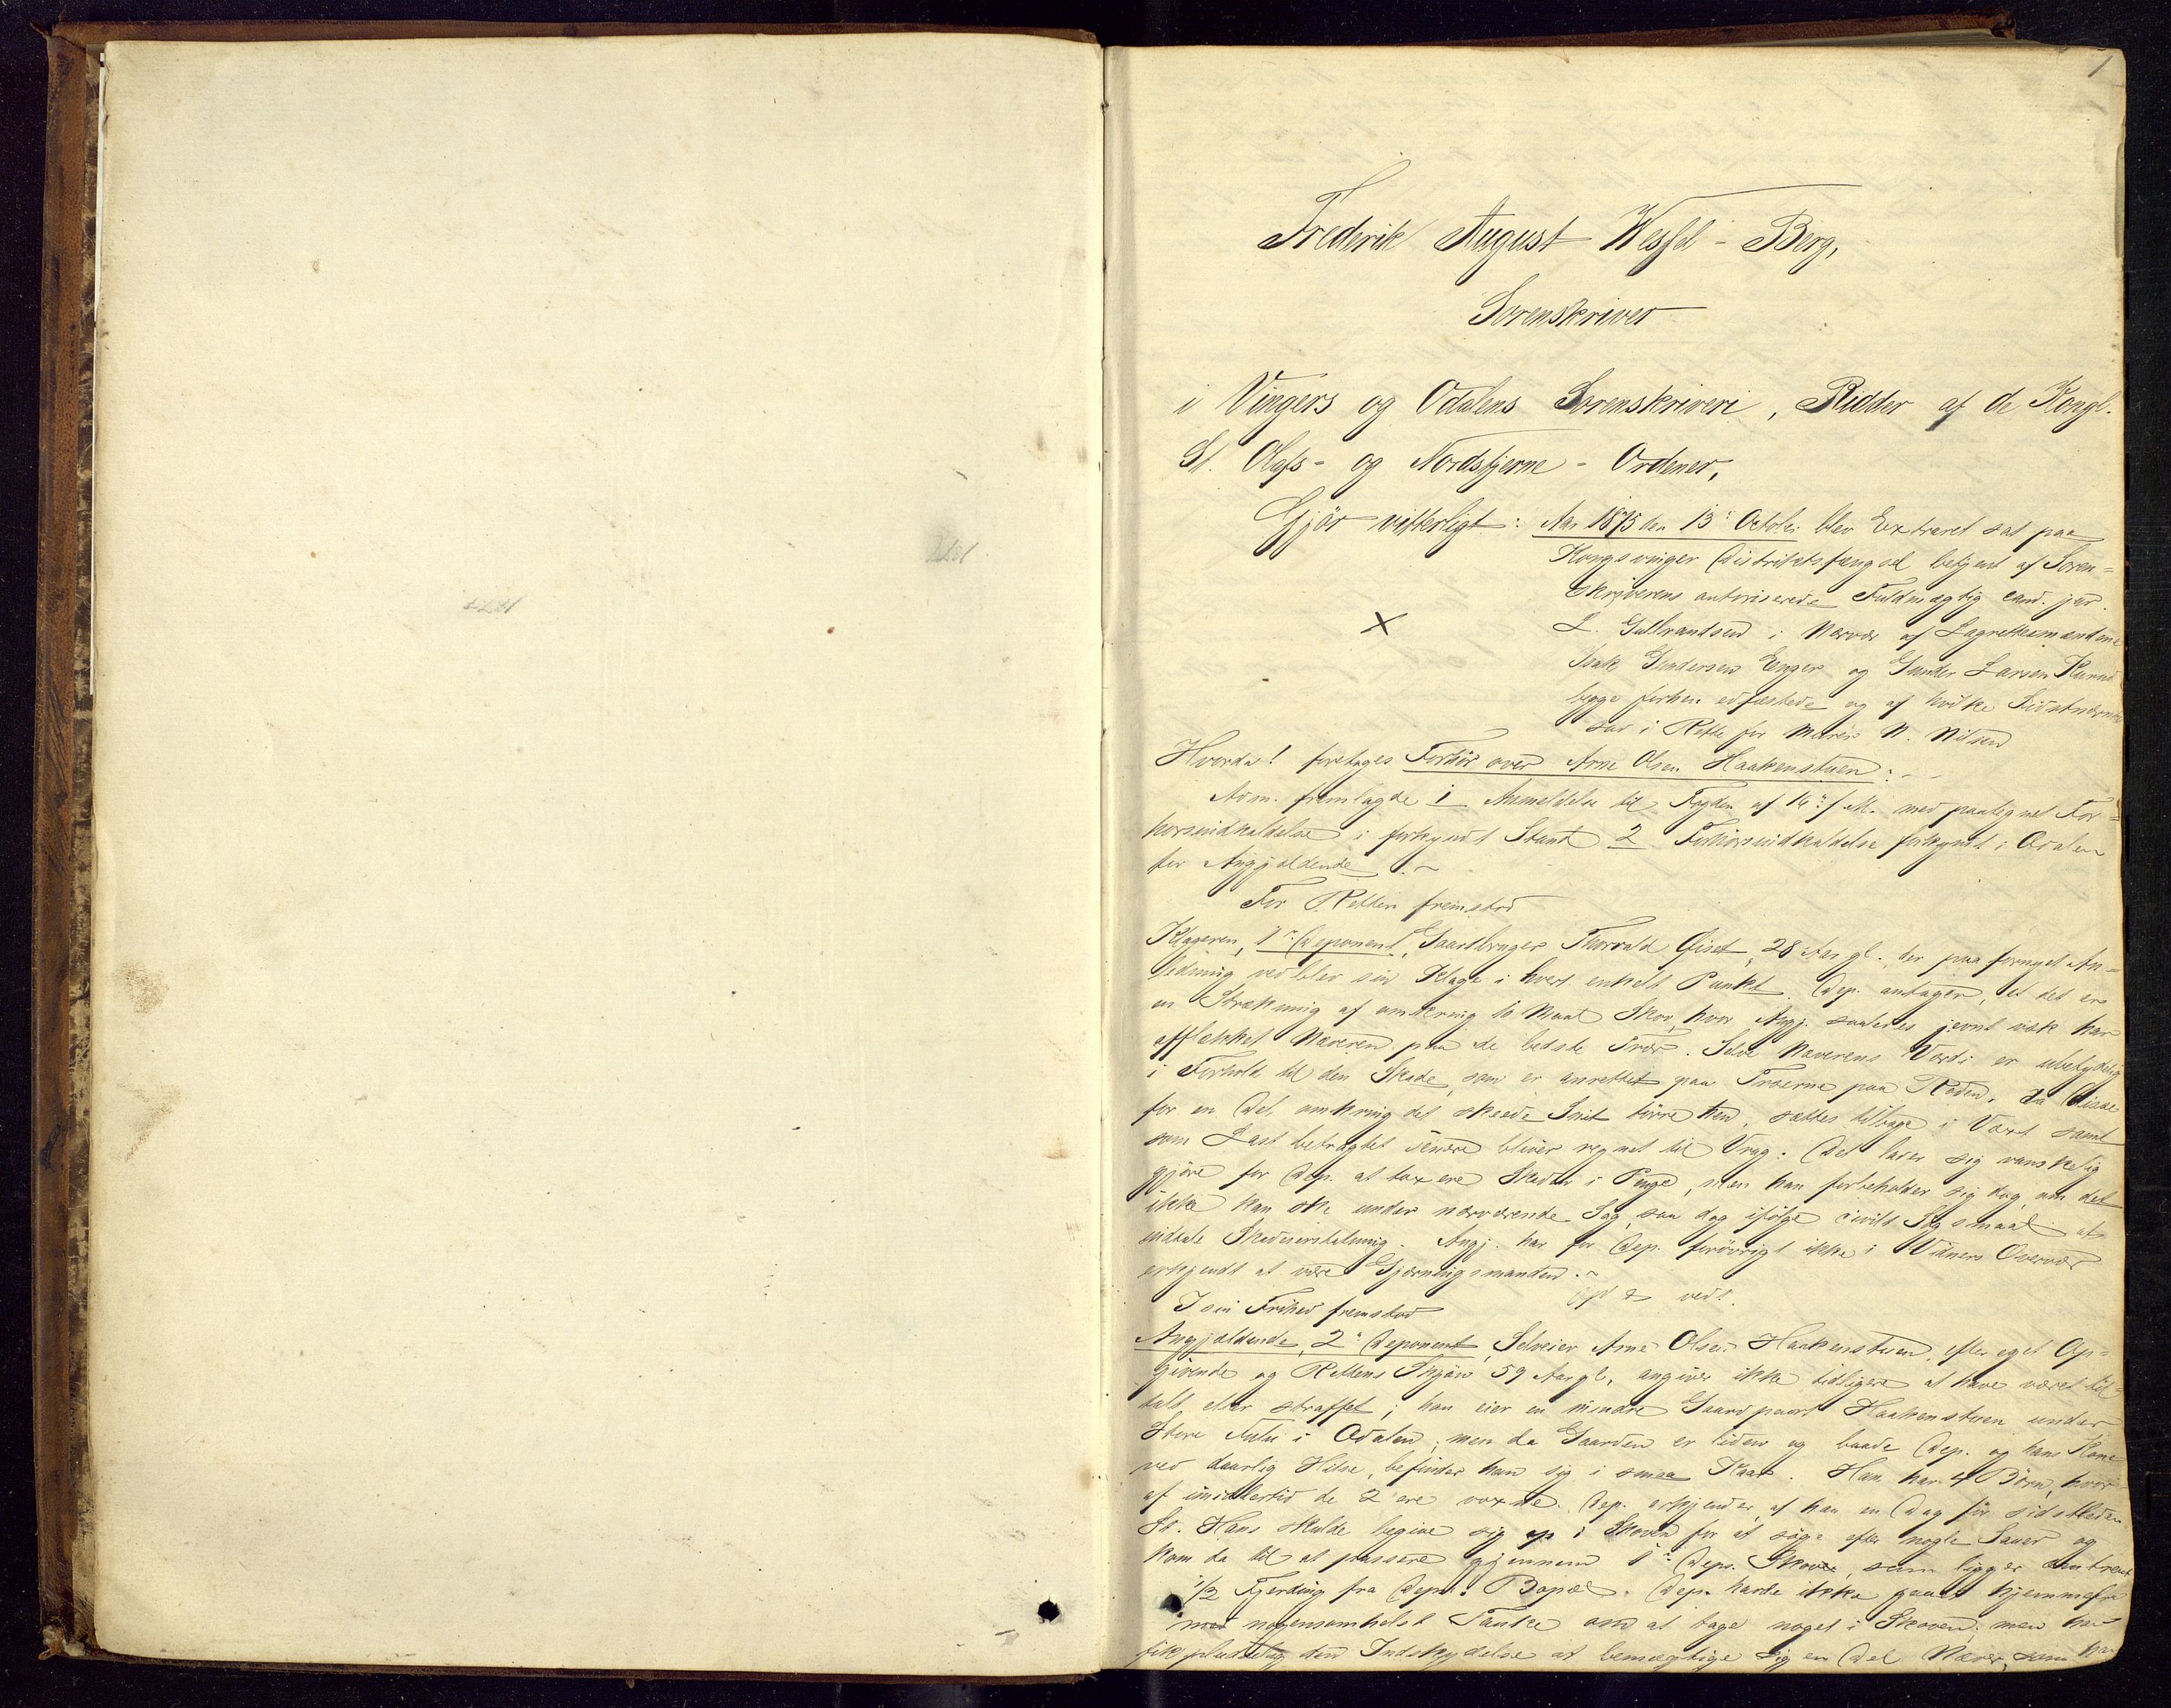 1
Frederik August Wessel-Berg,
Sorenskriver
i Vingers og Odalens Sorenskriveri, Ridder af de Kongl.
St. Olafs- og Nordstjerne-Ordener,
Gjör vitterligt: Aar 1875 den 13de October blev Extraret sat paa
Kongsvinger Distriktsfængsel betjent af Soren=
skriverens autoriserede Fuldmægtig cand. jur.
L. Gulbrandsen i Nærvær af Lagrettesmændene
Isak Gundersen Enger og Gunder Larsen
begge forhen edfæstede og af hvilke Sidstnævnte
sad i Rette for N. Nilsen
Hvorda! foretages Forhör over Arne Olsen Haakenstuen:-
Adm. fremlagde 1 Anmeldelse til Fogden af 16de f.M. med paategnet For=
hörsindkaldelse i forkyndt Stand 2 Forhörsindkaldelse forkyndt i Odalen
for Angjældende.-
For Retten fremstod
Klageren, 1ste Deponent, Gaardbruger Thorvald Ofset, 28 Aar gl. der paa fornyet An=
ledning vedblev sin Klage i hvert enkelt Punkt. Dep. antager, at det er
en Strækning af omkring 10 Maal Skov, hvor Angj. saaledes jevnt væk har
afflækket Næveren paa de bedste Trær. Selve Næverens Værdi er ubetydelig
i Forhold til den Skade, som er anrettet paa Træerne paa Roden, da Disse
for en Del omkring det skeede Snit törre hen, sættes tilbage i Væxt samt
som Last betragtet senere bliver regnet til Vrag. Det lader sig vanskelig
gjöre for Dep. at taxere Skaden i Penge, men han forbeholder sig dog, om det
ikke kan ske under nærværende Sag, saa dog ifölge civilt Sögsmaal at
indtale Skadeserstatning. Angj. har for Dep. forövrigt ikke i Vidners Overvær
erkjendt at være Gjerningsmanden.-
Opl & vedt.
I sin Frihed fremstod
Angjældende, 2den Deponent, Selveier Arne Olsen Haakenstuen, efter eget Op=
givende og Rettens Skjön 59 Aar gl, angiver ikke tidligere at have været til=
talt eller straffet; han eier en mindre Gaardpart Haakenstuen under
Store i Odalen; men da Gaarden er liden og baade Dep. og hans Kone
ved daarlig Helse, befinder han sig i smaa Kaar. Han har 4 Börn, hvor=
af imidlertid de 2 ere voxne. Dep. erkjender, at han en Dag för sidstleden
St. Hans skulde begive sig op i Skoven for at söge efter nogle Sauer og
kom da til at passere gjennem 1ste Deps. Skov, som ligger omtrent
1/2 Fjerding fra Deps. Bopæl. Dep. havde ikke gaaet hjemmefra
med nogensomhelst Tanke om at tage noget i Skoven; men han
fik pludselig den Indskydelse at bemægtige sig en Del Næver, som han